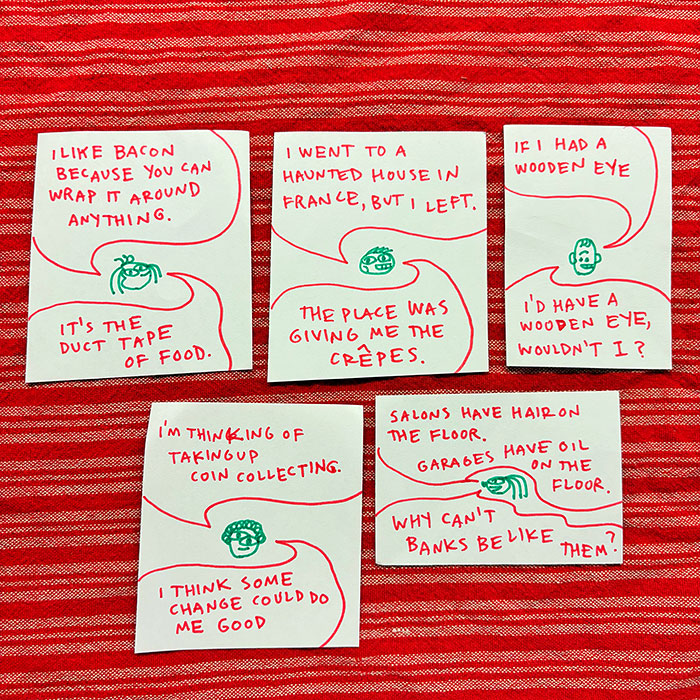 I LIKE BACON
BECAUSE YOU CAN
WRAP IT AROUND
ANYTHING.
IT'S THE
DUCT TAPE
OF FOOD.
I WENT TO A
HAUNTED HOUSE IN
FRANCE, BUT I LEFT.
THE PLACE WAS
GIVING ME THE
CRÊPES.
IF I HAD A
WOODEN EYE
I'D HAVE A
WOODEN EYE,
WOULDN'T I?
I'M THINKING OF
TAKING UP
COIN COLLECTING.
I THINK SOME
CHANGE COULD DO
ME GOOD
SALONS HAVE HAIR ON
THE FLOOR.
GARAGES HAVE OIL
ON THE
FLOOR.
WHY CAN'T
BANKS BE LIKE
THEM?